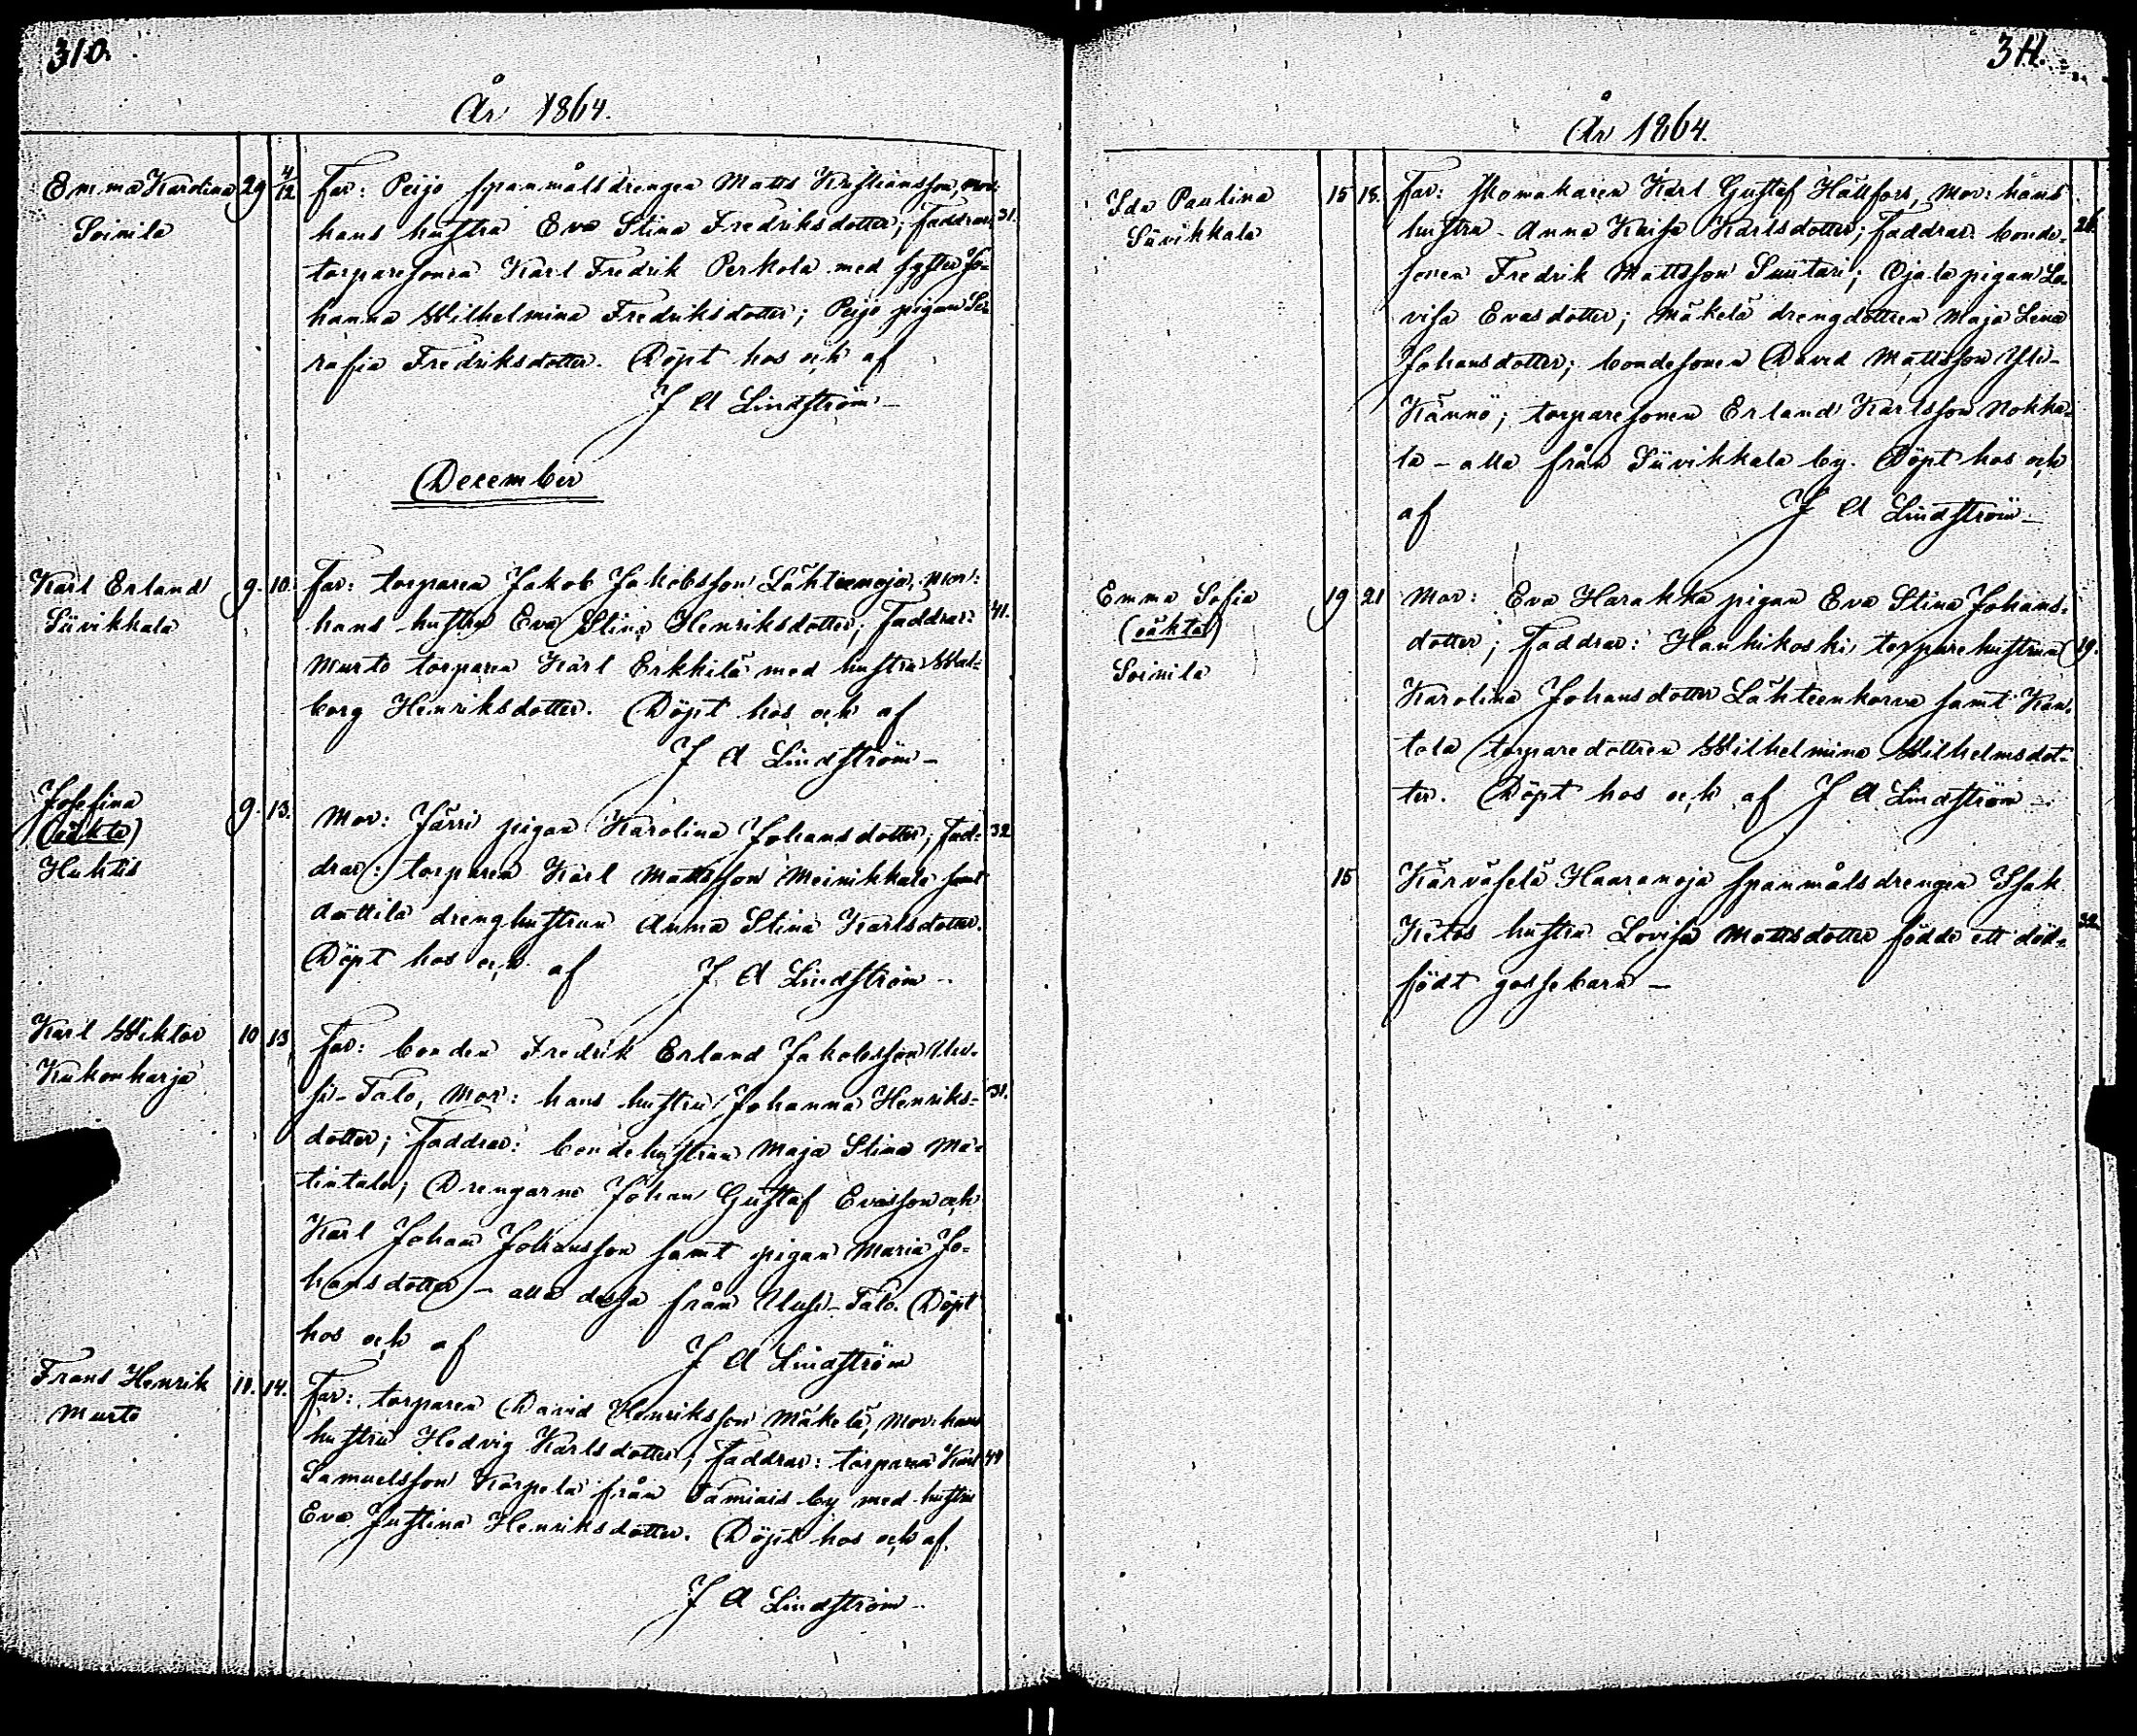 310.
År 1864.
Emma Karolina 29 4/12 Far: Peijo spanmålsdrengen Matts Kristiansson, mor:
Soinila hans hustru Eva Stina Fredriksdotter; Faddrar: 31.
torparesonen Karl Fredrik Perkola med syster Jo-
hanna Wilhelmina Fredriksdotter; Peijo pigan Se-
rafia Fredriksdotter. Döpt hos och af
J A Lindström
December
Karl Erland 9. 10. Far: torparen Jakob Jakobsson Lähteenoja, Mor:
Siivikkala hans hustru Eva Stina Henriksdotter; Faddrar: 41.
Murto torparen Karl Erkkilä med hustru Wal-
borg Henriksdotter. Döpt hos och af
J A Lindström
Josefina 9. 13. Mor: Järri pigan Karolina Johansdotter; Fad- 32
(oäkta) drar: torparen Karl Mattsson Meinikkala samt
Huhtis Anttila drenghustrun Anna Stina Karlsdotter.
Döpt hos och af J A Lindström
Karl Wiktor 10 13 Far: bonden Fredrik Erland Jakobsson Uu-
Kukonharja si-Talo, Mor: hans hustru Johanna Henriks- 31.
dotter; Faddrar: bondehustrun Maja Stina Ma-
tintalo; Drengarne Johan Gustaf Evasson och
Karl Johan Johansson samt pigan Maria Jo-
hansdotter - alla dessa från Uusi-Talo. Döpt
hos och af J A Lindström
Frans Henrik 11. 14. Far: torparen David Henriksson Mäkelä, Mor: hans
Murto hustru Hedvig Karlsdotter; Faddrar: torparen Karl 49
Samuelsson Korpela från Tamiais by med hustru
Eva Justina Henriksdotter. Döpt hos och af
J A Lindström
311.
År 1864.
Ida Paulina 15 18. Far: skomakaren Karl Gustaf Hällfors, Mor: hans
Siivikkala hustru Anna Kaisa Karlsdotter; Faddrar: bonde- 26.
sonen Fredrik Mattsson Suutari; Ojala pigan Lo-
visa Evasdotter; Mäkelä drengdottren Maja Lena
Johansdotter; bondesonen David Mattsson Yli-
Kännö; torparesonen Erland Karlsson Nokka-
la - alla från Siivikkala by. Döpt hos och
af J A Lindström
Emma Sofia 19 21 Mor: Eva Harakka pigan Eva Stina Johans-
(oäkta) dotter; Faddrar: Hanhikoski torparehustrun 19.
Soinila Karolina Johansdotter Lähteenkorva samt Kan-
tola torparedottren Wilhelmina Wilhelmsdot-
ter. Döpt hos och af J A Lindström
15 Kärväselä Haaranoja spanmålsdrengen Isak
Ketos hustru Lovisa Mattsdotter födde ett död- 32.
född gossebarn